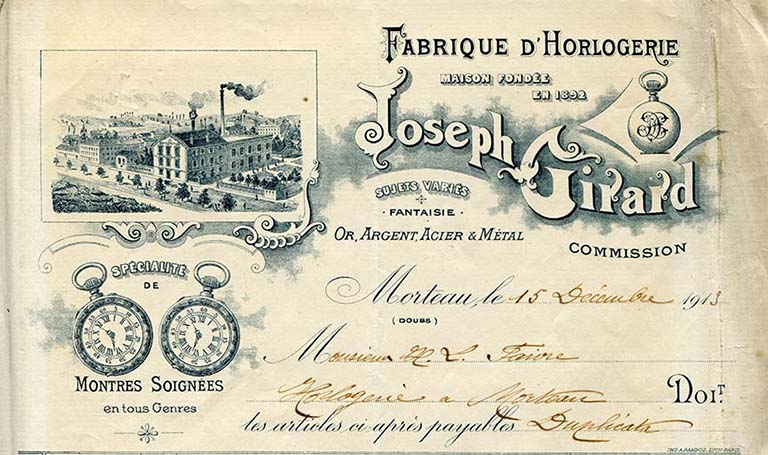 FABRIQUE D'HORLOGERIE
MAISON FONDÉE
EN 1892
Joseph Girard
SUJETS VARIÉS
FANTAISIE
OR, ARGENT, ACIER & MÉTAL
COMMISSION
SPÉCIALITÉ
DE
MONTRES SOIGNÉES
en tous Genres
Morteau, le 15 Décembre 1913
(DOUBS)
Monsieur H. L. Faivre
Horlogerie a Morteau DOIT
les articles ci-après payables Duplicata